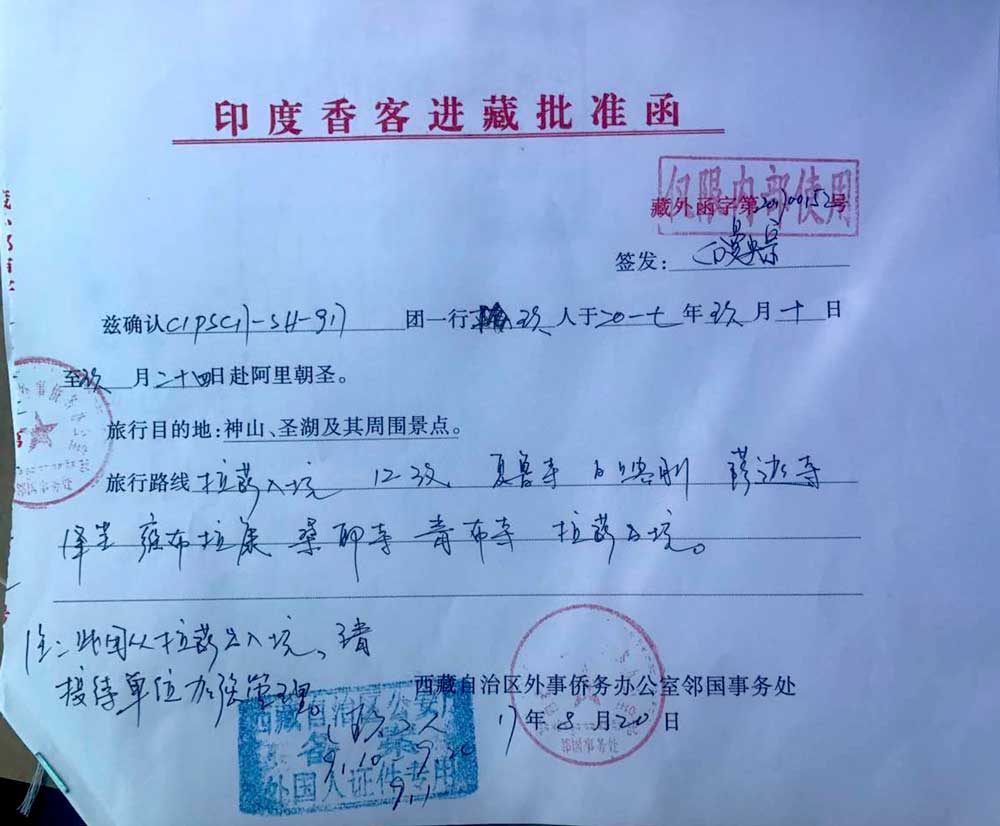 印度香客进藏批准函
仅限内部使用
藏外函字第 号
签发:
兹确认CIPSC17-SH-917 团一行 玖 人于二0一七年玖月十日
至玖月二十四日赴阿里朝圣。
旅行目的地:神山、圣湖及其周围景点。
旅行路线 拉萨入境 江孜 夏鲁寺 日喀则
泽当 雍布拉康 桑耶寺 青布寺 拉萨出境。
注:此团从拉萨出入境、请
接待单位加强管理。
西藏自治区外事侨务办公室邻国事务处
17年8月20日
邻国事务处
西藏自治区公安厅
备案
外国人证件专用